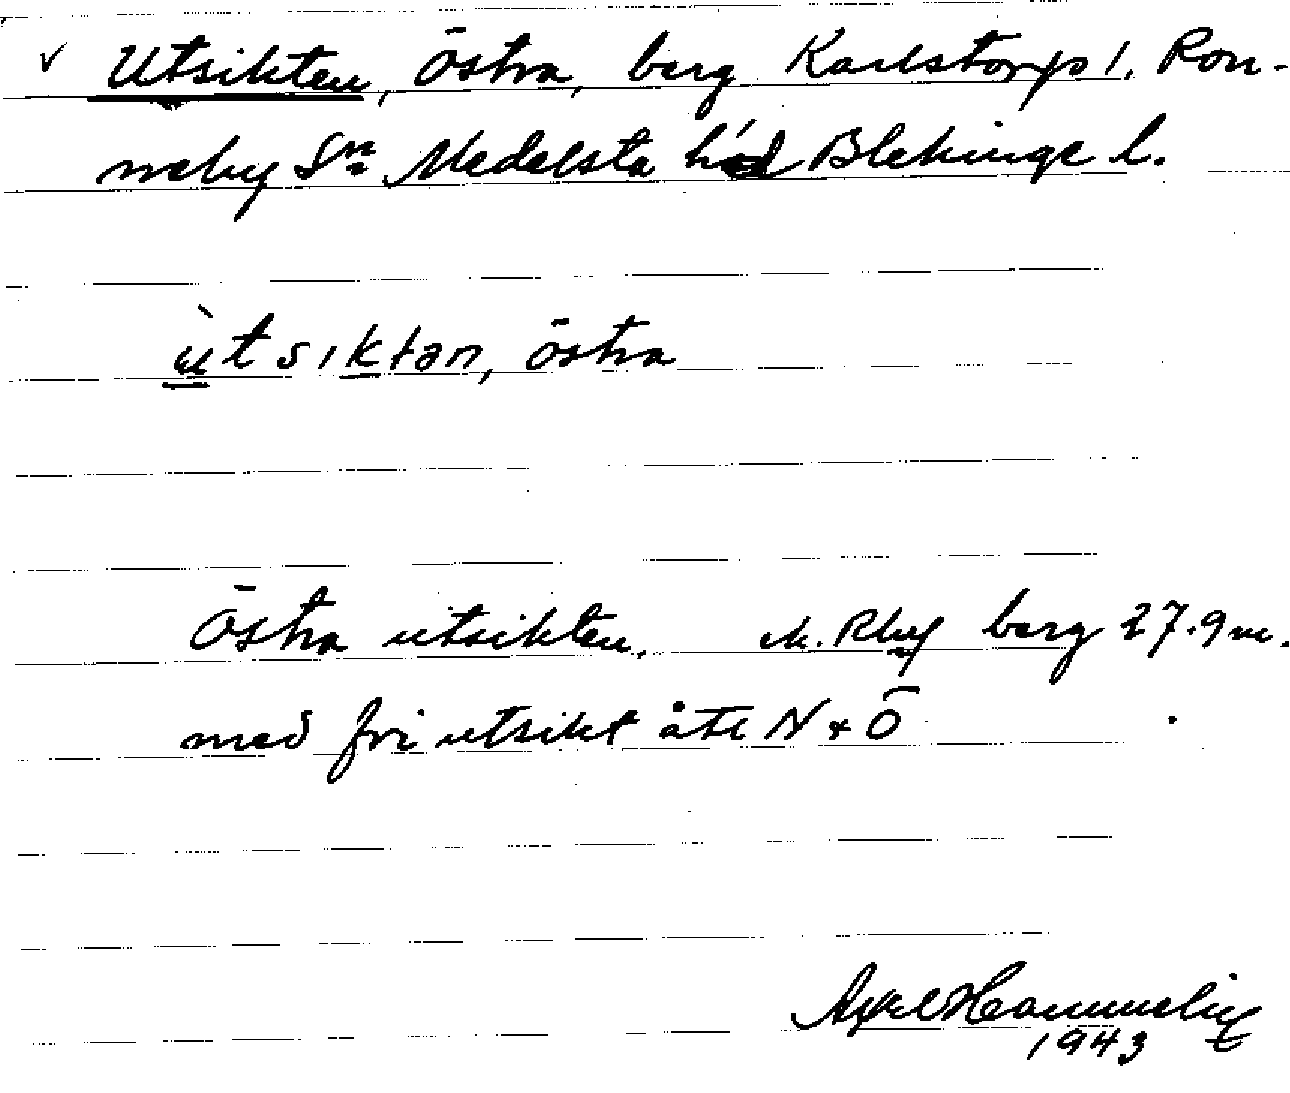 ✓ Utsikten, Östra, berg Karlstorp 1, Ron-
neby Sn Medelsta hd Blekinge l.
ùtsiktan, östra
Östra utsikten. berg 27.9 m.
med fri utsikt åt N + Ö
Axel
1943